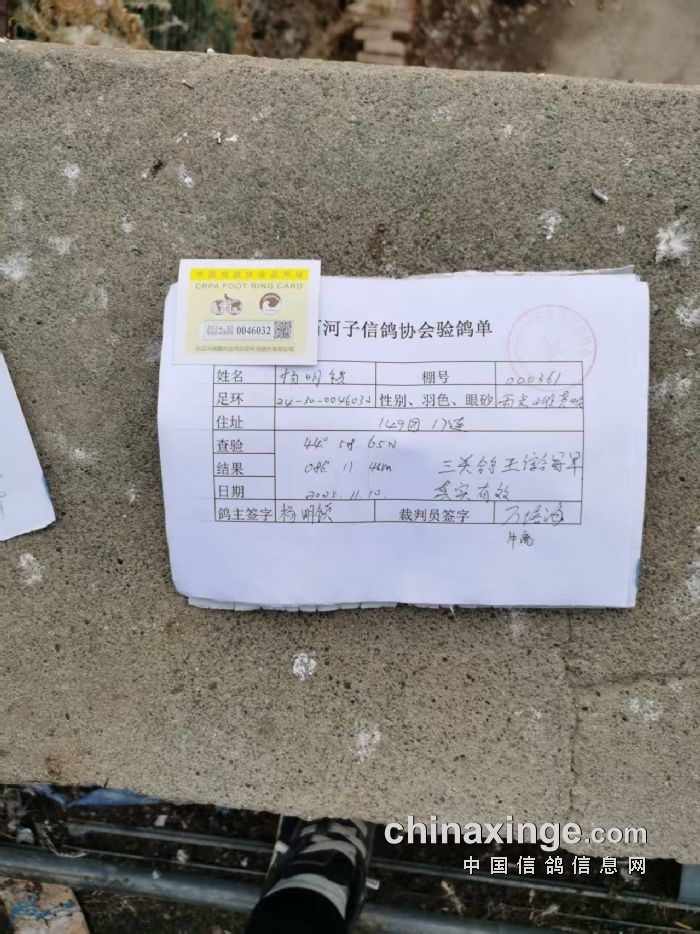 中国信鸽协会足环证
CRPA FOOT RING CARD
2024-30 0046032
河子信鸽协会验鸽单
姓名 杨明锁 棚号 000361
足环 24-30-0046032 性别、羽色、眼砂
住址 149团 17连
查验 44° 58 65N
结果 086 11 46m 三关鸽王综合冠军
日期 2025.11.10 真实有效
鸽主签字 杨明锁 裁判员签字
chinaxinge.com
中国信鸽信息网